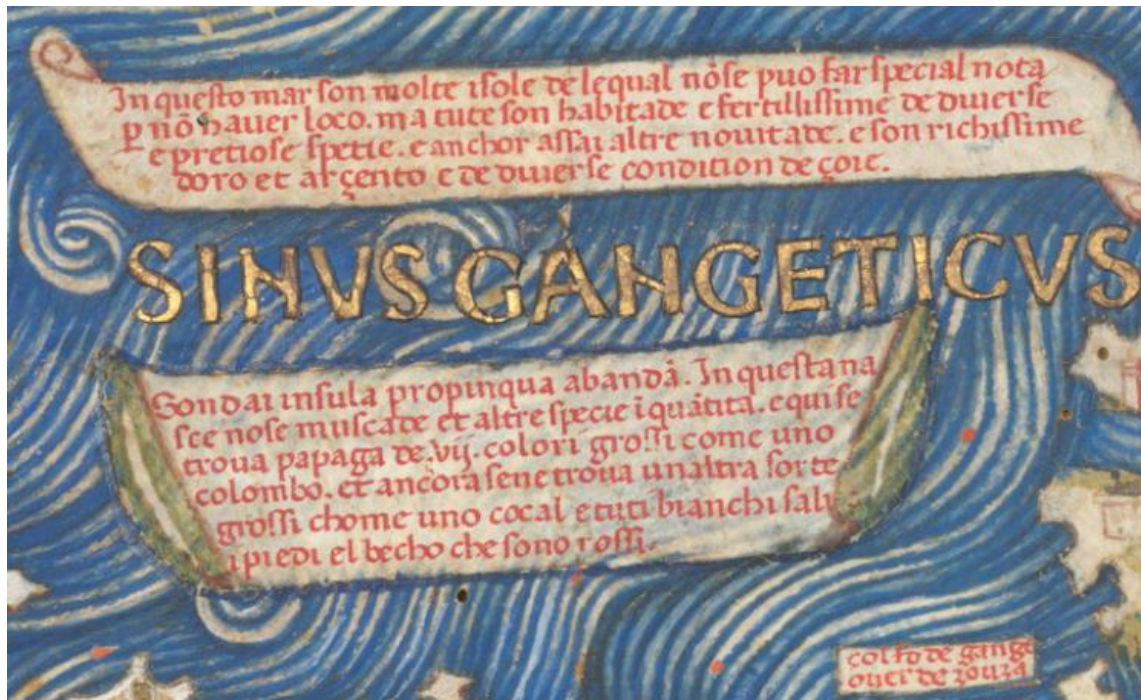 In questo mar son molte isole de lequal nõ se puo far special nota
p nõ haver loco. ma tute son habitade e fertillissime de diuerse
e pretiose spetie. e anchor assai altre nouitade. e son richissime
doro et arçento e de diuerse condition de çoie.
SINVS GANGETICVS
Sondai insula propinqua abandã. In questa na
sce nose muscade et altre specie ĩ quãtita. e qui se
troua papaga de .vij. colori grossi come uno
colombo. et ancora sene troua unaltra sorte
grossi chome uno cocal e tuti bianchi salv
i piedi el becho che sono rossi.
colfo de gange
ouer de zouza